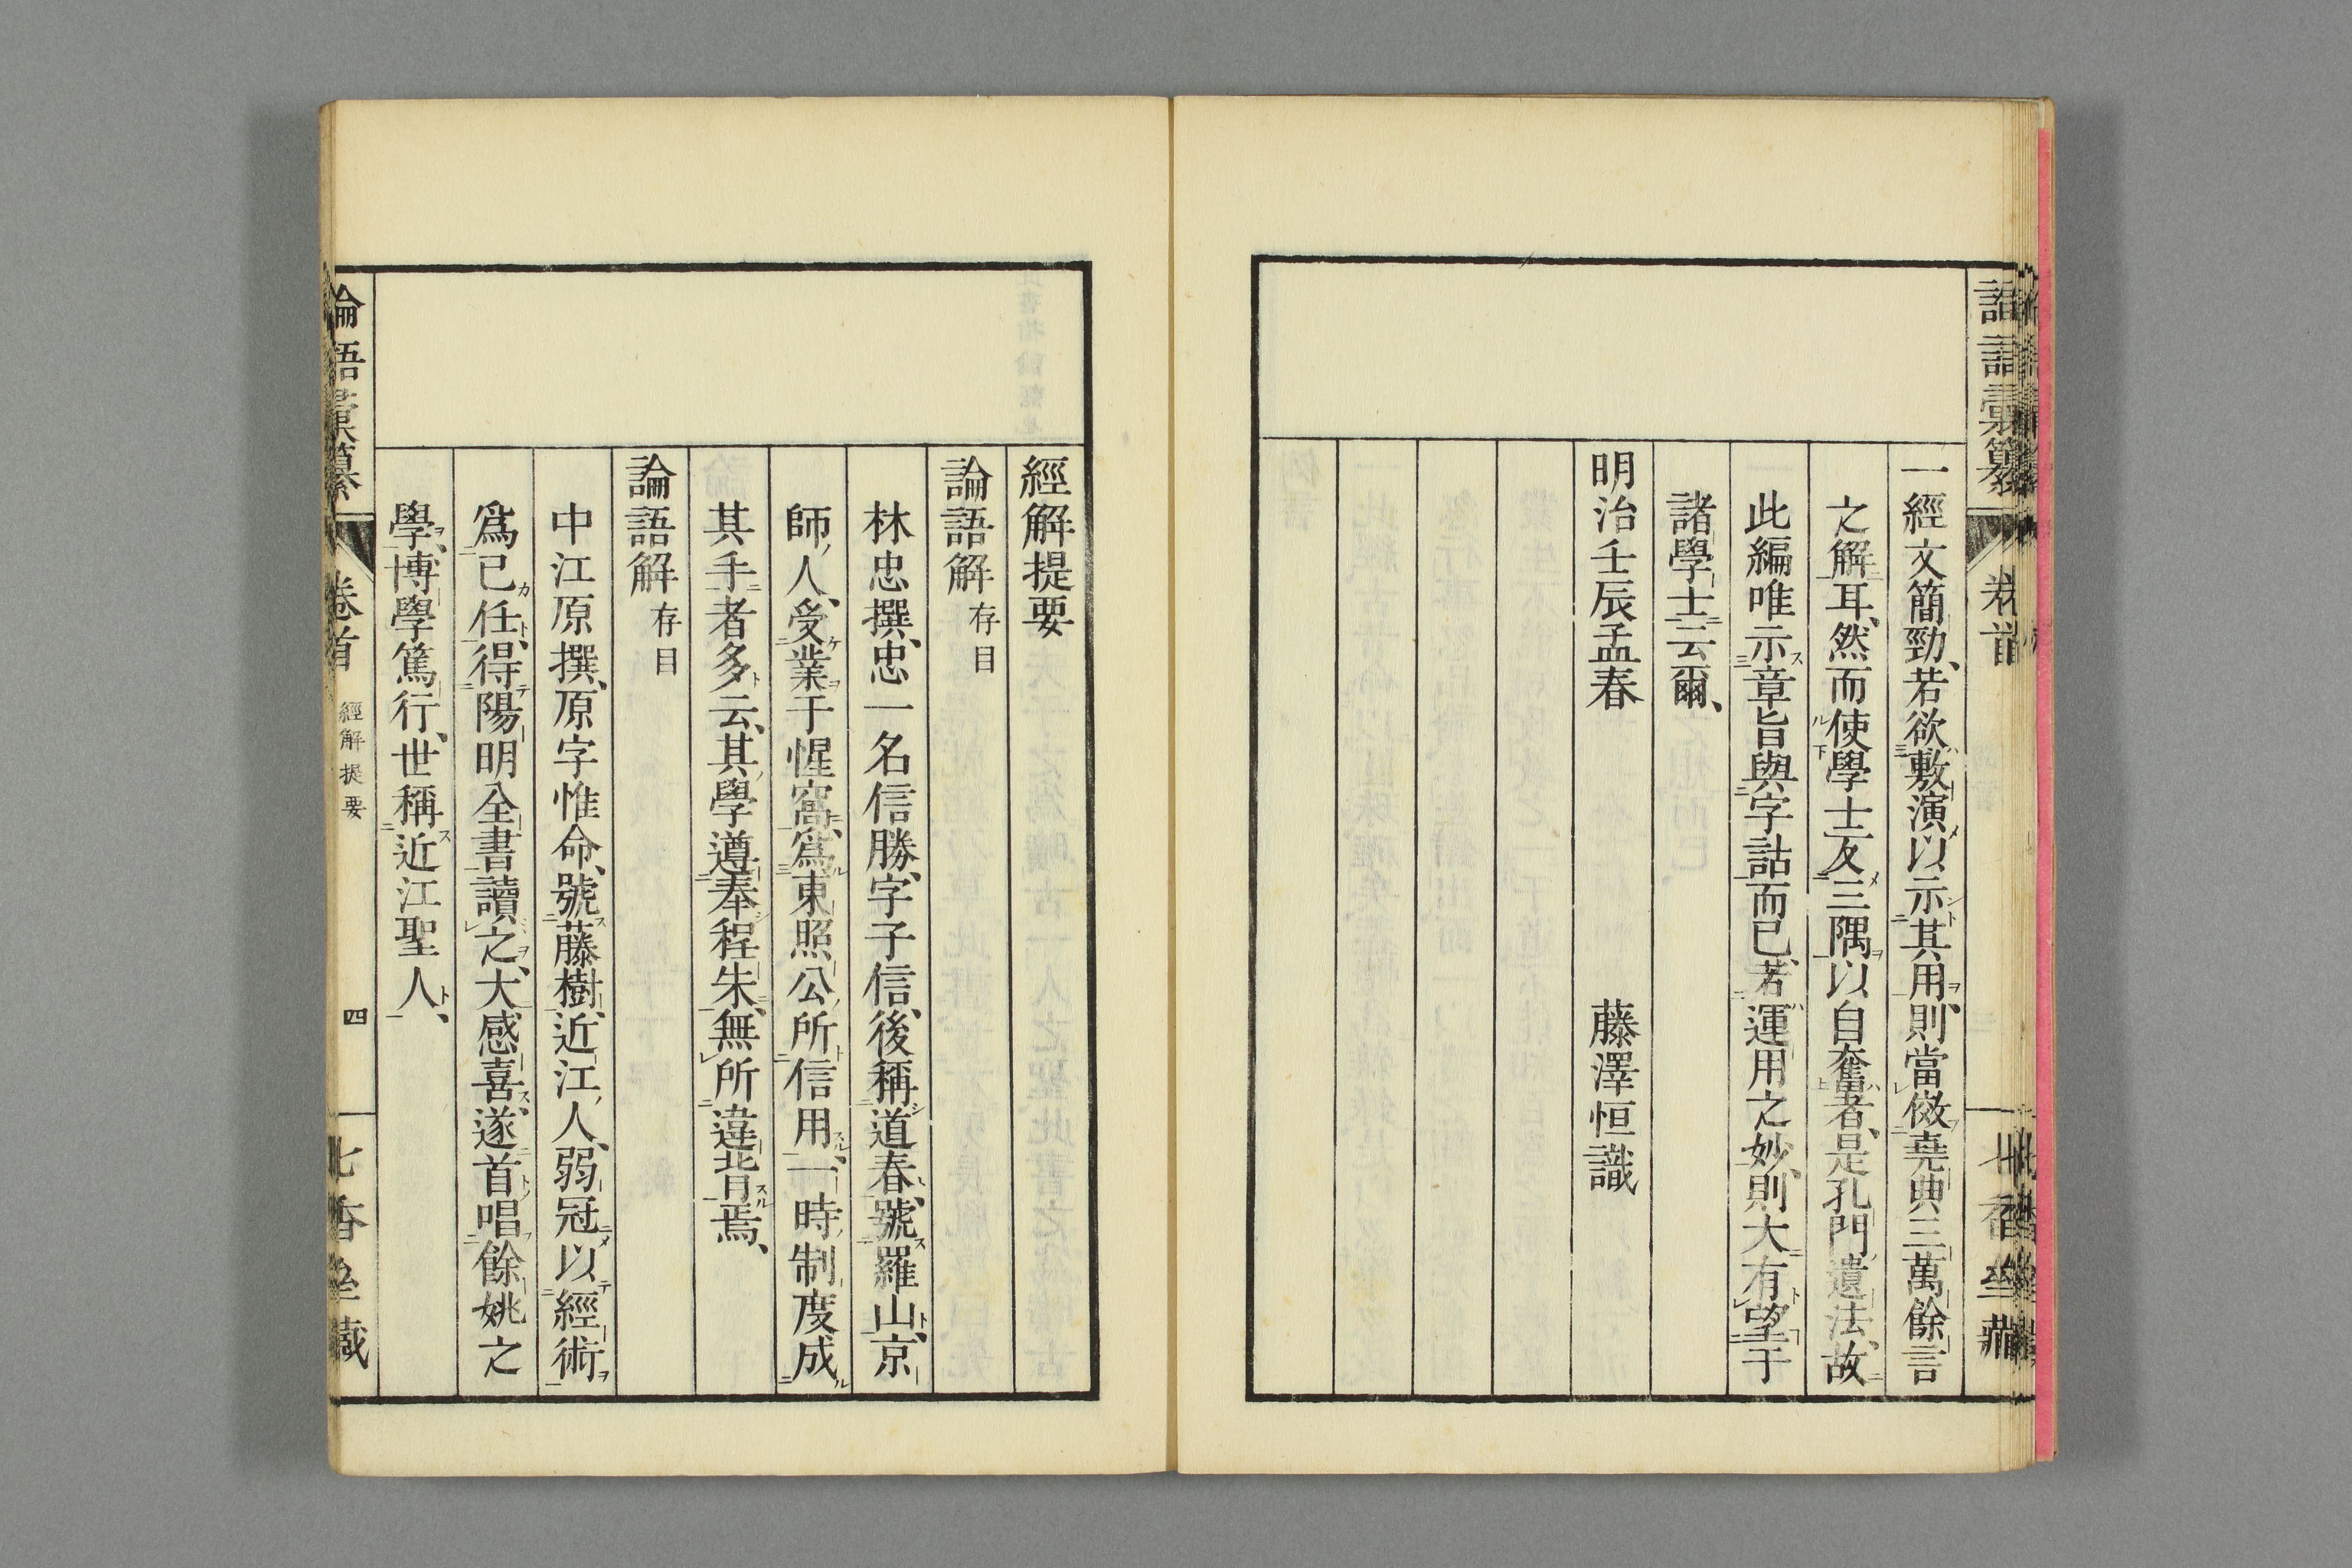 一經文簡勁、若欲敷演以示其用、則當傚堯典三萬餘言
之解耳、然而使學士反三隅以自奮者、是孔門遺法、故
此編唯示章旨與字詁而已、若運用之妙、則大有望于
諸學士云爾、
明治壬辰孟春 藤澤恒識
經解提要
論語解 存目
林忠撰、忠一名信勝、字子信、後稱道春、號羅山、京
師人、受業于惺窩、爲東照公所信用、一時制度成
其手者多云、其學遵奉程朱、無所違背焉、
論語解 存目
中江原撰、原字惟命、號藤樹、近江人、弱冠以經術
爲已任、得陽明全書讀之、大感喜、遂首唱餘姚之
學、博學篤行、世稱近江聖人、
論語彙纂 卷首 經解提要 四 七香齋藏